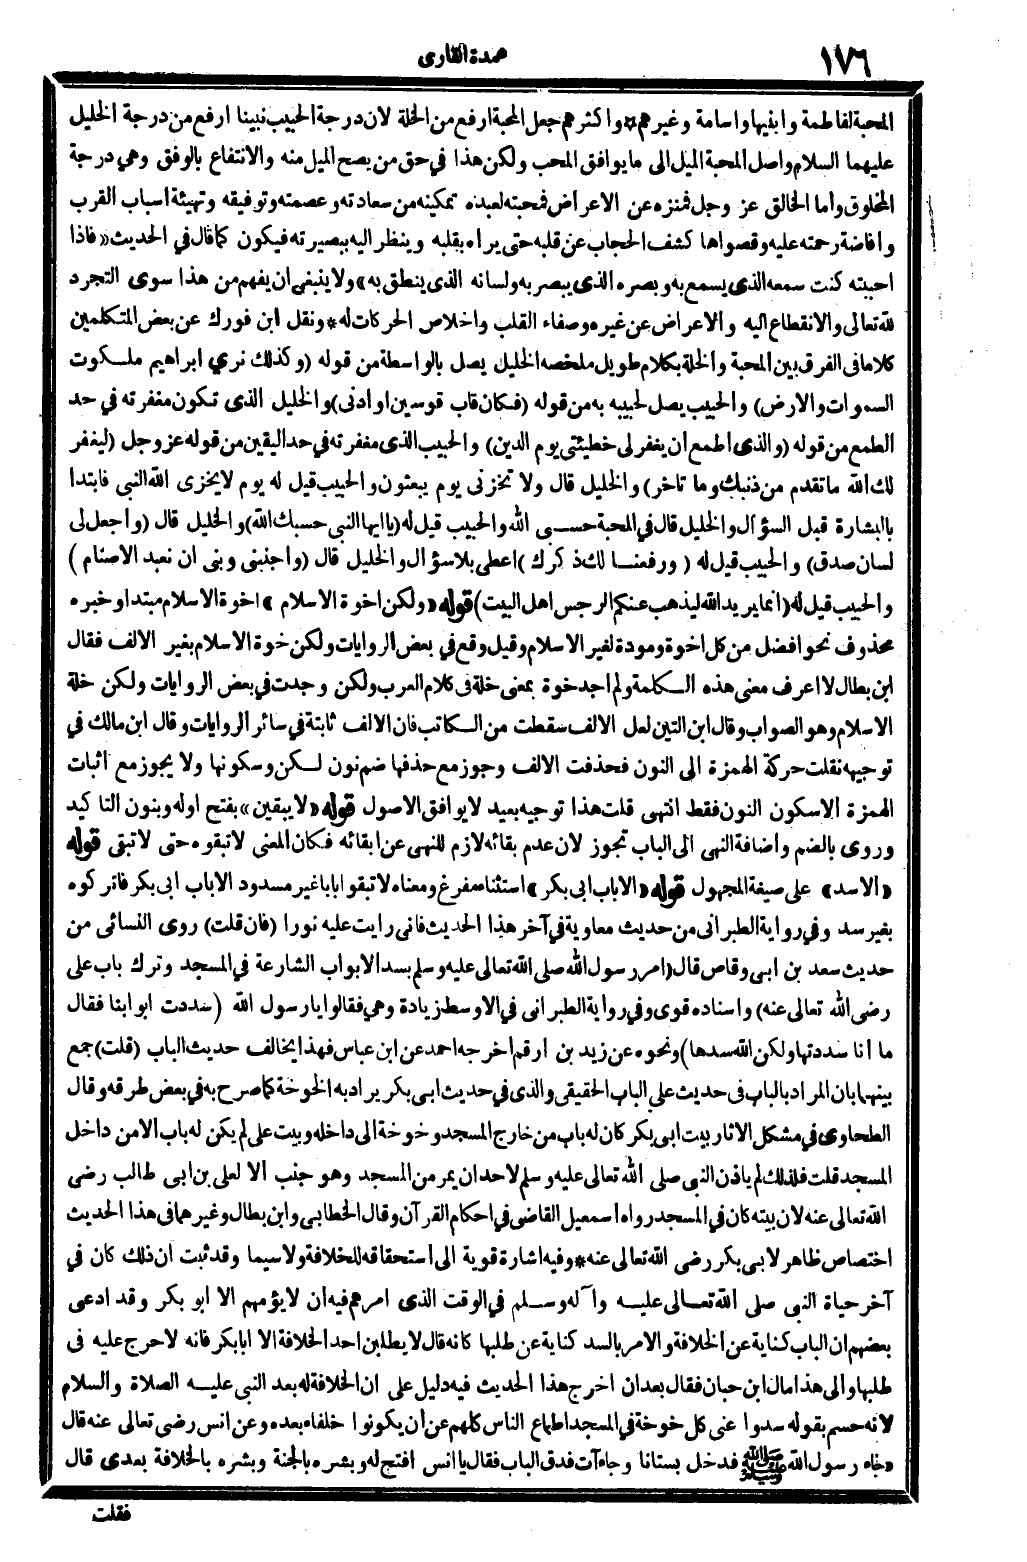 ١٧٦
عمدة القارى
المحبة لفاطمة وابنيها واسامة وغيرهم * واكثرهم جعل المحبة ارفع من الخلة لان درجة الحبيب نبينا ارفع من درجة الخليل
عليهما السلام واصل المحبة الميل الى ما يوافق المحب ولكن هذا في حق من يصح الميل منه والانتفاع بالوفق وهي درجة
المخلوق وأما الخالق عز وجل فمنزه عن الاعراض فمحبته لعبده تمكينه من سعادته وعصمته وتوفيقه وتهيئة اسباب القرب
وافاضة رحمته عليه وقصواها كشف الحجاب عن قلبه حتى يراه بقلبه وينظر اليه ببصيرته فيكون كما قال في الحديث «فاذا
احببته كنت سمعه الذى يسمع به وبصره الذى يبصر به ولسانه الذى ينطق به» ولا ينبغى ان يفهم من هذا سوى التجرد
لله تعالى والانقطاع اليه والاعراض عن غيره وصفاء القلب واخلاص الحركات له * ونقل ابن فورك عن بعض المتكلمين
كلاما فى الفرق بين المحبة والخلة بكلام طويل ملخصه الخليل يصل بالواسطة من قوله (وكذلك نري ابراهيم ملكوت
السموات والارض) والحبيب يصل لحبيبه به من قوله (فكان قاب قوسين او ادنى) والخليل الذى تكون مغفرته في حد
الطمع من قوله (والذى اطمع أن يغفر لى خطيئتى يوم الدين) والحبيب الذى مغفرته في حد اليقين من قوله عز وجل (ليغفر
لك الله ما تقدم من ذنبك وما تاخر) والخليل قال ولا تخزنى يوم يبعثون والحبيب قيل له يوم لا يخزى الله النبى فابتدا
بالبشارة قبل السؤال والخليل قال في المحبة حسبى الله والحبيب قيل له (يا ايها النبى حسبك الله) والخليل قال (واجعل لى
لسان صدق) والحبيب قيل له (ورفعنا لك ذكرك) اعطى بلا سؤال والخليل قال (واجنبنى وبنى ان نعبد الاصنام)
والحبيب قيل له (انما يريد الله ليذهب عنكم الرجس اهل البيت) قوله «ولكن اخوة الاسلام» اخوة الاسلام مبتدا وخبره
محذوف نحو افضل من كل اخوة ومودة لغير الاسلام وقيل وقع في بعض الروايات ولكن خوة الاسلام بغير الالف فقال
ابن بطال لا اعرف معنى هذه الكلمة ولم اجد خوة بمعنى خلة فى كلام العرب ولكن وجدت في بعض الروايات ولكن خلة
الاسلام وهو الصواب وقال ابن التين لعل الالف سقطت من الكاتب فان الالف ثابتة في سائر الروايات وقال ابن مالك في
توجيهه نقلت حركة الهمزة الى النون فحذفت الالف وجوز مع حذفها ضم نون لكن وسكونها ولا يجوز مع اثبات
الهمزة الا سكون النون فقط انتهى قلت هذا توجيه بعيد لا يوافق الاصول قوله «لا يبقين» بفتح اوله وبنون التاكيد
وروى بالضم واضافة النهى الى الباب تجوز لان عدم بقائه لازم للنهى عن ابقائه فكان المعنى لا تبقوه حتى لا تبقى قوله
«الا سد» على صيغة المجهول قوله «الا باب ابى بكر» استثناء مفرغ ومعناه لا تبقوا بابا غير مسدود الا باب ابى بكر فاتركوه
بغير سد وفي رواية الطبرانى من حديث معاوية في آخر هذا الحديث فانى رايت عليه نورا (فان قلت) روى النسائى من
حديث سعد بن ابى وقاص قال (امر رسول الله صلى الله تعالى عليه وسلم بسد الابواب الشارعة في المسجد وترك باب على
رضى الله تعالى عنه) واسناده قوى وفي رواية الطبرانى في الاوسط زيادة وهي فقالوا يا رسول الله (سددت ابوابنا فقال
ما أنا سددتها ولكن الله سدها) ونحوه عن زيد بن ارقم اخرجه احمد عن ابن عباس فهذا يخالف حديث الباب (قلت) جمع
بينهما بان المراد بالباب فى حديث علي الباب الحقيقى والذى في حديث ابى بكر يراد به الخوخة كما صرح به في بعض طرقه وقال
الطحاوى في مشكل الاثار بيت ابى بكر كان له باب من خارج المسجد وخوخة الى داخله وبيت على لم يكن له باب الا من داخل
المسجد قلت فلذلك لم ياذن النبى صلى الله تعالى عليه وسلم لاحد ان يمر من المسجد وهو جنب الا لعلى بن ابى طالب رضى
الله تعالى عنه لان بيته كان في المسجد رواه اسمعيل القاضى في احكام القرآن وقال الخطابى وابن بطال وغيرهما فى هذا الحديث
اختصاص ظاهر لابى بكر رضى الله تعالى عنه * وفيه اشارة قوية الى استحقاقه للخلافة ولا سيما وقد ثبت ان ذلك كان في
آخر حياة النبى صلى الله تعالى عليه وآله وسلم في الوقت الذى امرهم فيه ان لا يؤمهم الا ابو بكر وقد ادعى
بعضهم ان الباب كناية عن الخلافة والامر بالسد كناية عن طلبها كانه قال لا يطلبن احد الخلافة الا ابا بكر فانه لا حرج عليه فى
طلبها والى هذا مال ابن حبان فقال بعد ان اخرج هذا الحديث فيه دليل على ان الخلافة له بعد النبى عليه الصلاة والسلام
لانه حسم بقوله سدوا عنى كل خوخة في المسجد اطماع الناس كلهم عن ان يكونوا خلفاء بعده وعن انس رضى تعالى عنه قال
«جاء رسول الله ﷺ فدخل بستانا وجاء آت فدق الباب فقال يا انس افتح له وبشره بالجنة وبشره بالخلافة بعدى قال
فقلت